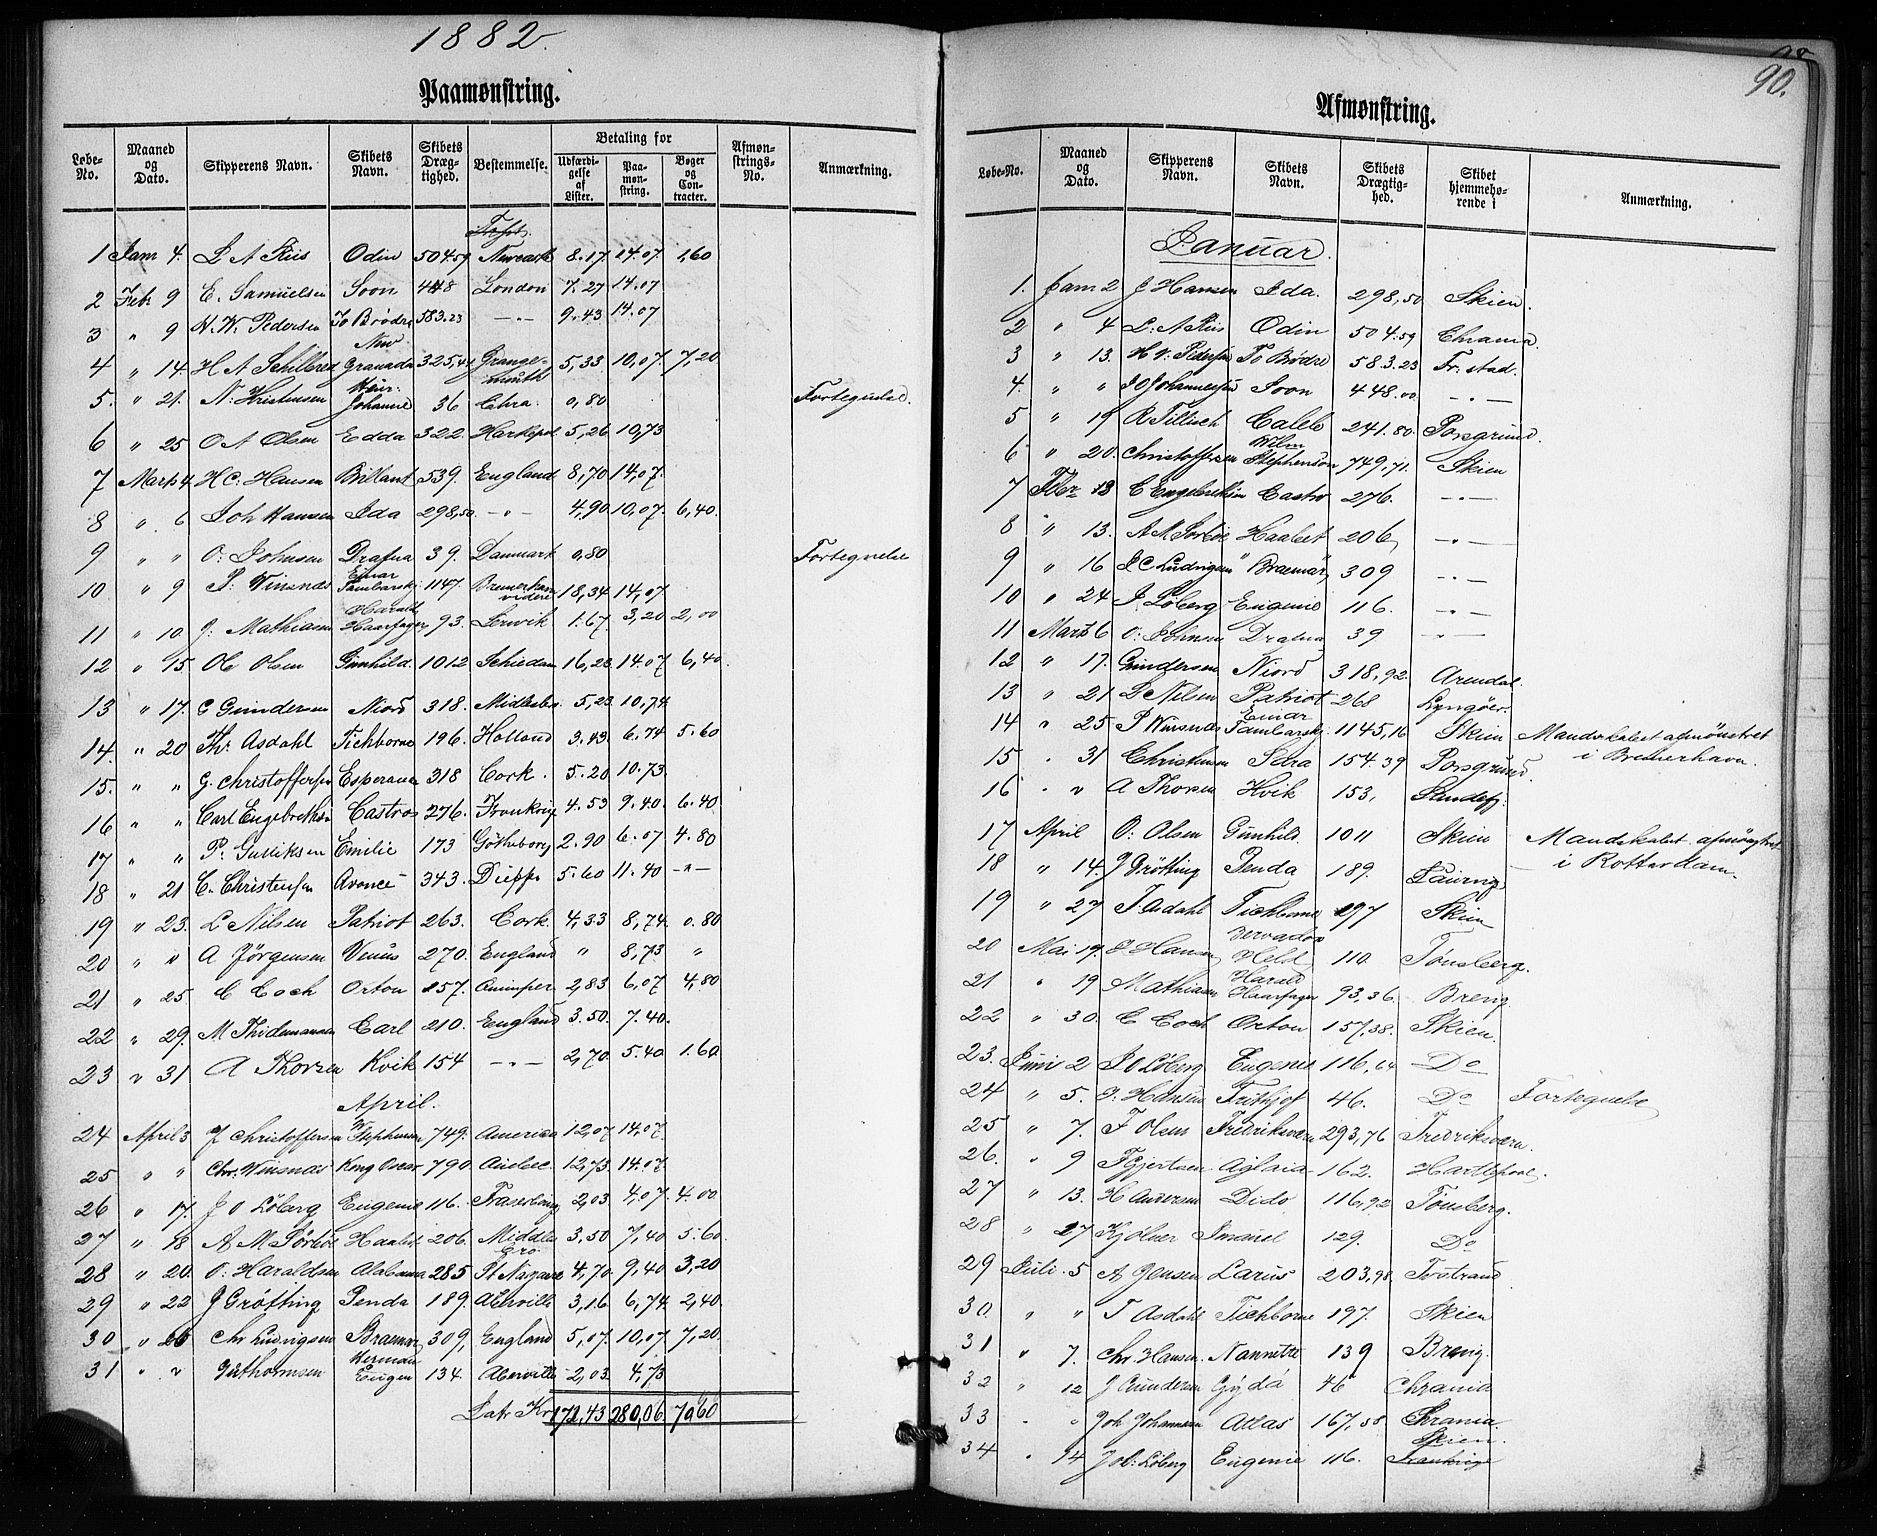 1882.
Paamønstring.
Løbe-No. | Maaned og Dato. | Skipperens Navn. | Skibets Navn. | Skibets Dræg-tighed. | Bestemmelse. | Betaling for | Udfærdi-gelse af Lister. | Paa-møn-string. | Bøger og Con-tracter. | Afmøn-strings-No. | Anmærkning.
1 Janr 4. L A Riis Odin 504.59 Newcastle 8.17 14.07 1,60
2 Febr 9 E. Samuelsen Soon 448 London 7.27 14.07
3 " 9 H. W. Pedersen To Brødre 583.23 -"- 9.43 14.07
4 " 14. H A New Granada 325, Grange-mouth 5,33 10,07 7,20
5. " 21. N: Kristensen Johanne 36 Chra. 0,80 Fortegnelse.
6 " 25 O A Olsen Edda 322. 5,26 10,73
7 Marts 4 H C. Hansen Brillant 539. England 8,70 14,07.
8 " 6 Joh Hansen Ida 298,50 -"- 4,90 10,07. 6,40.
9 " " O: Johnsen Drafna 39. Danmark 0,80 Fortegnelse
10 " 9 P. Winsnes Einar Tambarskj 1147. Bremerhav videre 18,34 14,07
11 " 10. J: Mathiasen Harald Haarfager 93. Lervik 1.67 3,20 2,00
12 " 15. Ole Olsen Gunhild. 1012 Schiedam 16,23 14.07 6,40
13 " 17. G Gundersen Niord 318. Midlesbro. 5,23 10,74
14. " 20 Th: Asdahl Tichborne 196. Holland 3.43 6.74 5.60
15. " " G. Christoffersen Esperance 318 Cork. 5.20 10.73.
16 " " Carl Engebretsen Castro 276. Frankrig 4.53 9.40. 6.40
17 " " P: Gulliksen Emilie 173 Götheborg 2.90 6.07 4.80
18 " 21 C. Christensen Avance 343. Dieppe 5.60 11.40 -"-
19 " 23. L Nilsen Patriot 263. Cork. 4,33 8,74. 0.80
20 " " A Jörgensen Venus 270. England " 8,73 "
21 " 25 C Coch Orton 157. 2,83 6,07 4,80
22 " 29. M Thidemansen Carl 210. England 3.50. 7.40.
23 " 31 A Thorsen Kvik 154 -"- 2,70. 5.40 1.60
April.
24 April 3 J Christoffersen W Stephenson 749. America 12,07 14,07.
25 " " Chr. Winsnes Kong Oscar 790 12,73. 14.07.
26 " 17. J O Löberg Eugenie 116. 2,03. 4,07. 4.00
27 " 18 A M Sörbøe Haabet 206. Middlesbro 3,50 7,40 5.60
28 " 20. O: Haraldsen Alabama 285 St Nazaire 4,70. 9,40 3,20
29 " 22 J Gröfting Penda 189. Aberville 3,16 6,74. 2,40.
30 " 26 Chr Ludvigsen Braemar 309, England 5,07. 10,07. 7,20.
31 " " Guthormsen Herman Eugen 134. Aberville 2,03. 4,73
Latr Kr. 172,43 280,06 79,60

90.
Afmønstring.
Løbe-No. | Maaned og Dato. | Skipperens Navn. | Skibets Navn. | Skibets Drægtig-hed. | Skibet hjemmehø-rende i | Anmærkning.
Januar.
1. Janr 2 J Hansen Ida. 298,50 Skien.
2 " 4 L: A Riis Odin 504.59 Chrania.
3 " 13. H W: Pedersen To Brødre 583.23 Fr. stad.
4. " " J O Johannessen Soon 448.00 -"-
5 " 19 R Tillisch Caleb 241.80. Porsgrund.
6 " 20. Christoffersen Wilm Stephenson 749,71. Skien
7 Febr 13 C Engebretsen Castro 276. -"-
8 " 13. A M Sörböe Haabet 206, -"-
9 " 16 J C Ludvigsen "Braemar" 309 -"-
10 " 24 J Løberg Eugenie 116. -"-
11 Marts 6 O: Johnsen Drafna 39 -"-
12 " 17. Gundersen Niord 318,92. Arendal.
13 " 21 L Nilsen Patriot 268 Lyngöer.
14 " 25 P Winsnes Einar Tambarskj. 1145,16 Skien Mandskabet afmönstret i Bremerhavn.
15 . 31 Christensen 154.39 Porsgrund.
16 . " A Thorsen Kvik 153,
17 April O: Olsen Gunhild. 1011 Skien Mandskabet afmönstret i Rotterdam.
18 " 14. J Gröfting Penda 189.
19 " 27 T. Asdahl Tichborne 197 Skien
20 Mai 19. Hansen Held 110 Tönsberg.
21 " 19 Mathiasen Harald Haarfager 93,36. Brevig
22 " 30. C Coch Orton 157,38. Skien.
23. Juni 2 J O Löberg Eugenie 116,64 Do
24 " 5. J. Hansen Frithjof 46. Do Fortegnelse
25 " 7. F Olsen Fredriksværn 293,76 Fredriksværn.
26. " 9 F Gjertsen Aglaia 162. Hartlepool.
27 " 13. H Andersen Dido 116,92 Tönsberg.
28 " 27 Kjölner 129. Do
29 Juli. 5 A Jensen Larus 203,98.
30. " " T Asdahl Tichborne 197. Skien
31 " 7. Chr. Hansen. Nannette 139 Brevig.
32 " 12 J Gundersen Gyda 46 Chrania
33 . " Joh Johannesen Atlas 167,58
34 . 14 Job: Löberg Eugenie 116. Skien. Frankrige